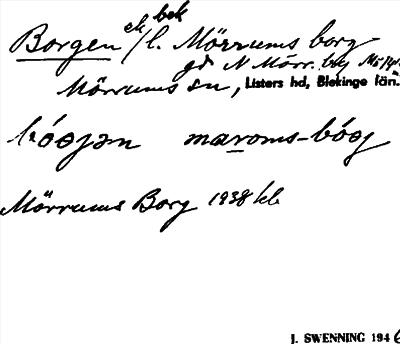 ek bek
Borgen / l. Mörrums borg
gd N Mörr. by
Mörrums sn, Listers hd, Blekinge län.
bóɘjən maroms-bóɘj
Mörrums Borg 1938 kb
J. SWENNING 1946